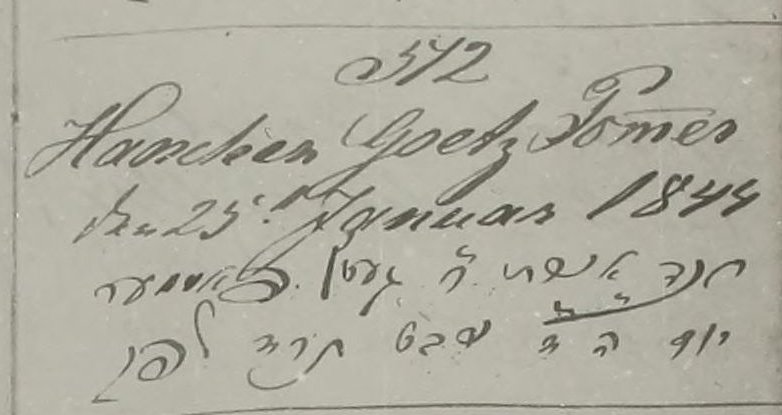 542
Hanchen Goetz Pom̄er
den 25t Januar 1844
חנה אשת ר' געטץ פאממער
יום ה ד שבט תרד לפק